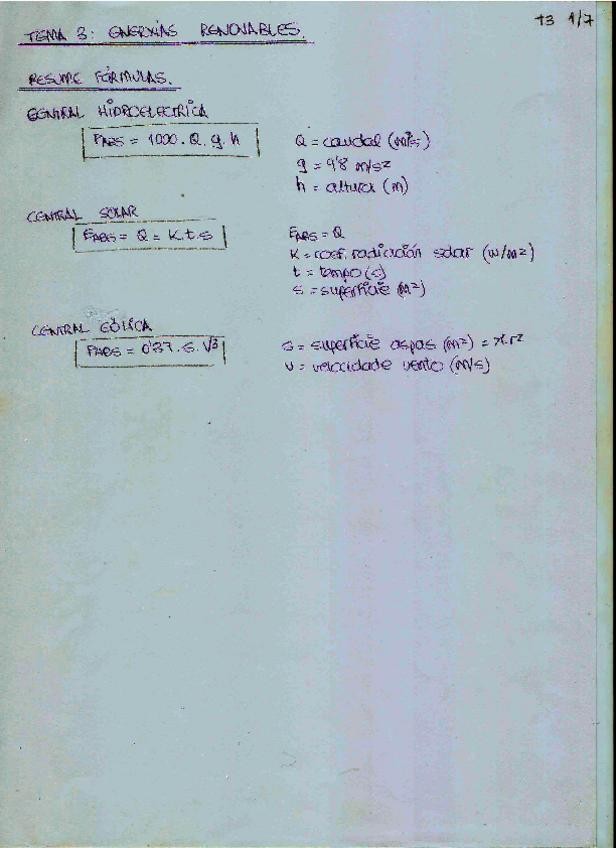 T3 1/7
TEMA 3: ENERXÍAS RENOVABLES.
RESUME FÓRMULAS.
CENTRAL HIDROELECTRICA
PABS = 1000 . Q . g . h
Q = caudal (m³/s)
g = 9'8 m/s²
h = altura (m)
CENTRAL SOLAR
EABS = Q = K . t . s
EABS = Q
K = coef. radiación solar (w/m²)
t = tempo (s)
s = superficie (m²)
CENTRAL EÓLICA
PABS = 0'37 . S . V³
S = superficie aspas (m²) = π.r²
v = velocidade vento (m/s)